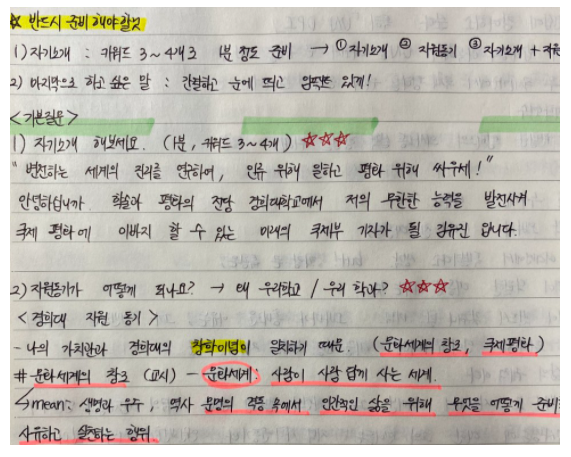 ☆ 반드시 준비해야할것
1) 자기소개 : 키워드 3~4개로 1분 정도 준비 → ① 자기소개 ② 지원동기 ③ 자기소개 + 지원
2) 마지막으로 하고 싶은 말 : 간결하고 눈에 띄고 임팩트 있게!
<기본질문>
1) 자기소개 해보세요. (1분, 키워드 3~4개) ☆☆☆
" 변전하는 세계의 진리를 연구하여, 인류 위해 일하고 평화 위해 싸우세!"
안녕하십니까 학술과 평화의 전당 경희대학교에서 저의 무한한 능력을 발전시켜
국제 평화에 이바지 할 수 있는 미래의 국제부 기자가 될 김유진 입니다.
2) 지원동기가 어떻게 되나요? → 왜 우리학교 / 우리 학과? ☆☆☆
<경희대 지원 동기>
- 나의 가치관과 경희대의 창학이념이 일치하기 때문. (문화세계의 창조, 국제평화)
# 문화세계의 창조 (교시) - 문화세계: 사람이 사람 답게 사는 세계.
↳mean: 생명과 우주, 역사 문명의 격동 속에서 인간적인 삶을 위해 무엇을 어떻게 준비
사유하고 실천하는 행위